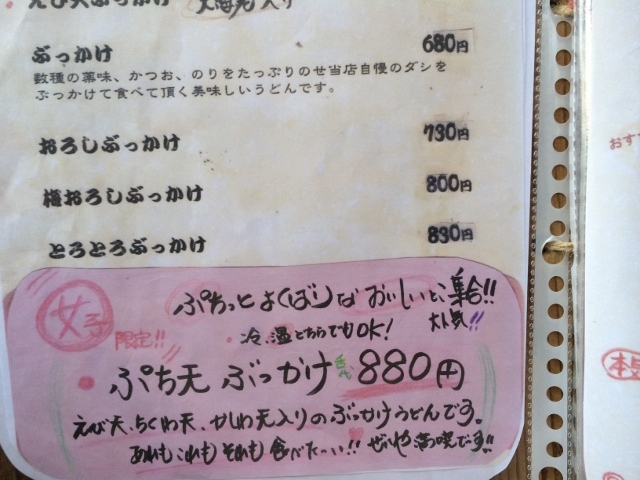 えび天ぶっかけ 大海老入り
ぶっかけ 680円
数種の薬味、かつお、のりをたっぷりのせ当店自慢のダシを
ぶっかけて食べて頂く美味しいうどんです。
おろしぶっかけ 730円
梅おろしぶっかけ 800円
とろとろぶっかけ 830円
女子
限定!!
ぷちっとよくばりなおいしいとこ集合!!
大人気!!
冷、温どちらでもOK!
ぷち天 ぶっかけ 880円
えび天、ちくわ天、かしわ天入りのぶっかけうどんです。
あれもこれもそれも食べたーい!! ぜいたく満喫です!!
おす
本気